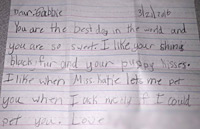 Dear Gabbie 3/21/2016
You are the best dog in the world and
you are so sweet. I like your shiny
black fur and your puppy kisses.
I like when Miss Katie lets me pet
you when I ask nicely if I could
pet you. Love